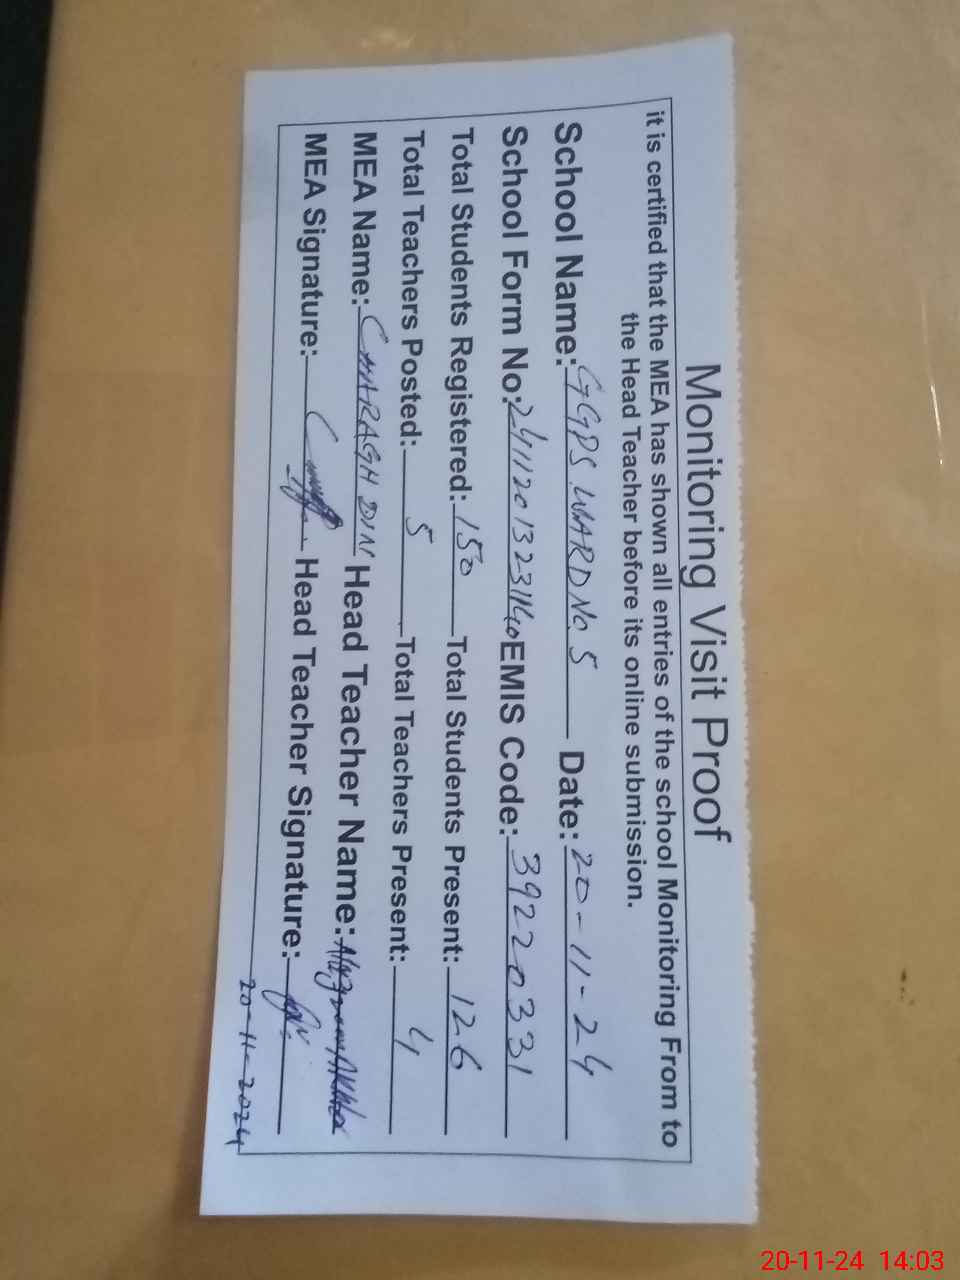 Monitoring Visit Proof
it is certified that the MEA has shown all entries of the school Monitoring From to
the Head Teacher before its online submission.
School Name: GGPS WARD No. 5 Date: 20-11-24
School Form No: EMIS Code: 39220331
Total Students Registered: 150 Total Students Present: 126
Total Teachers Posted: 5 Total Teachers Present: 4
MEA Name: CHARAGH DIN Head Teacher Name:
MEA Signature: Head Teacher Signature:
20-11-2024
20-11-24 14:03